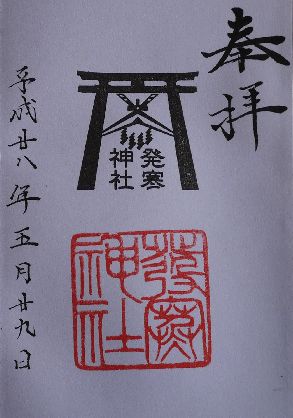 奉拝
発寒
神社
発寒
神社
平成廿八年五月廿九日